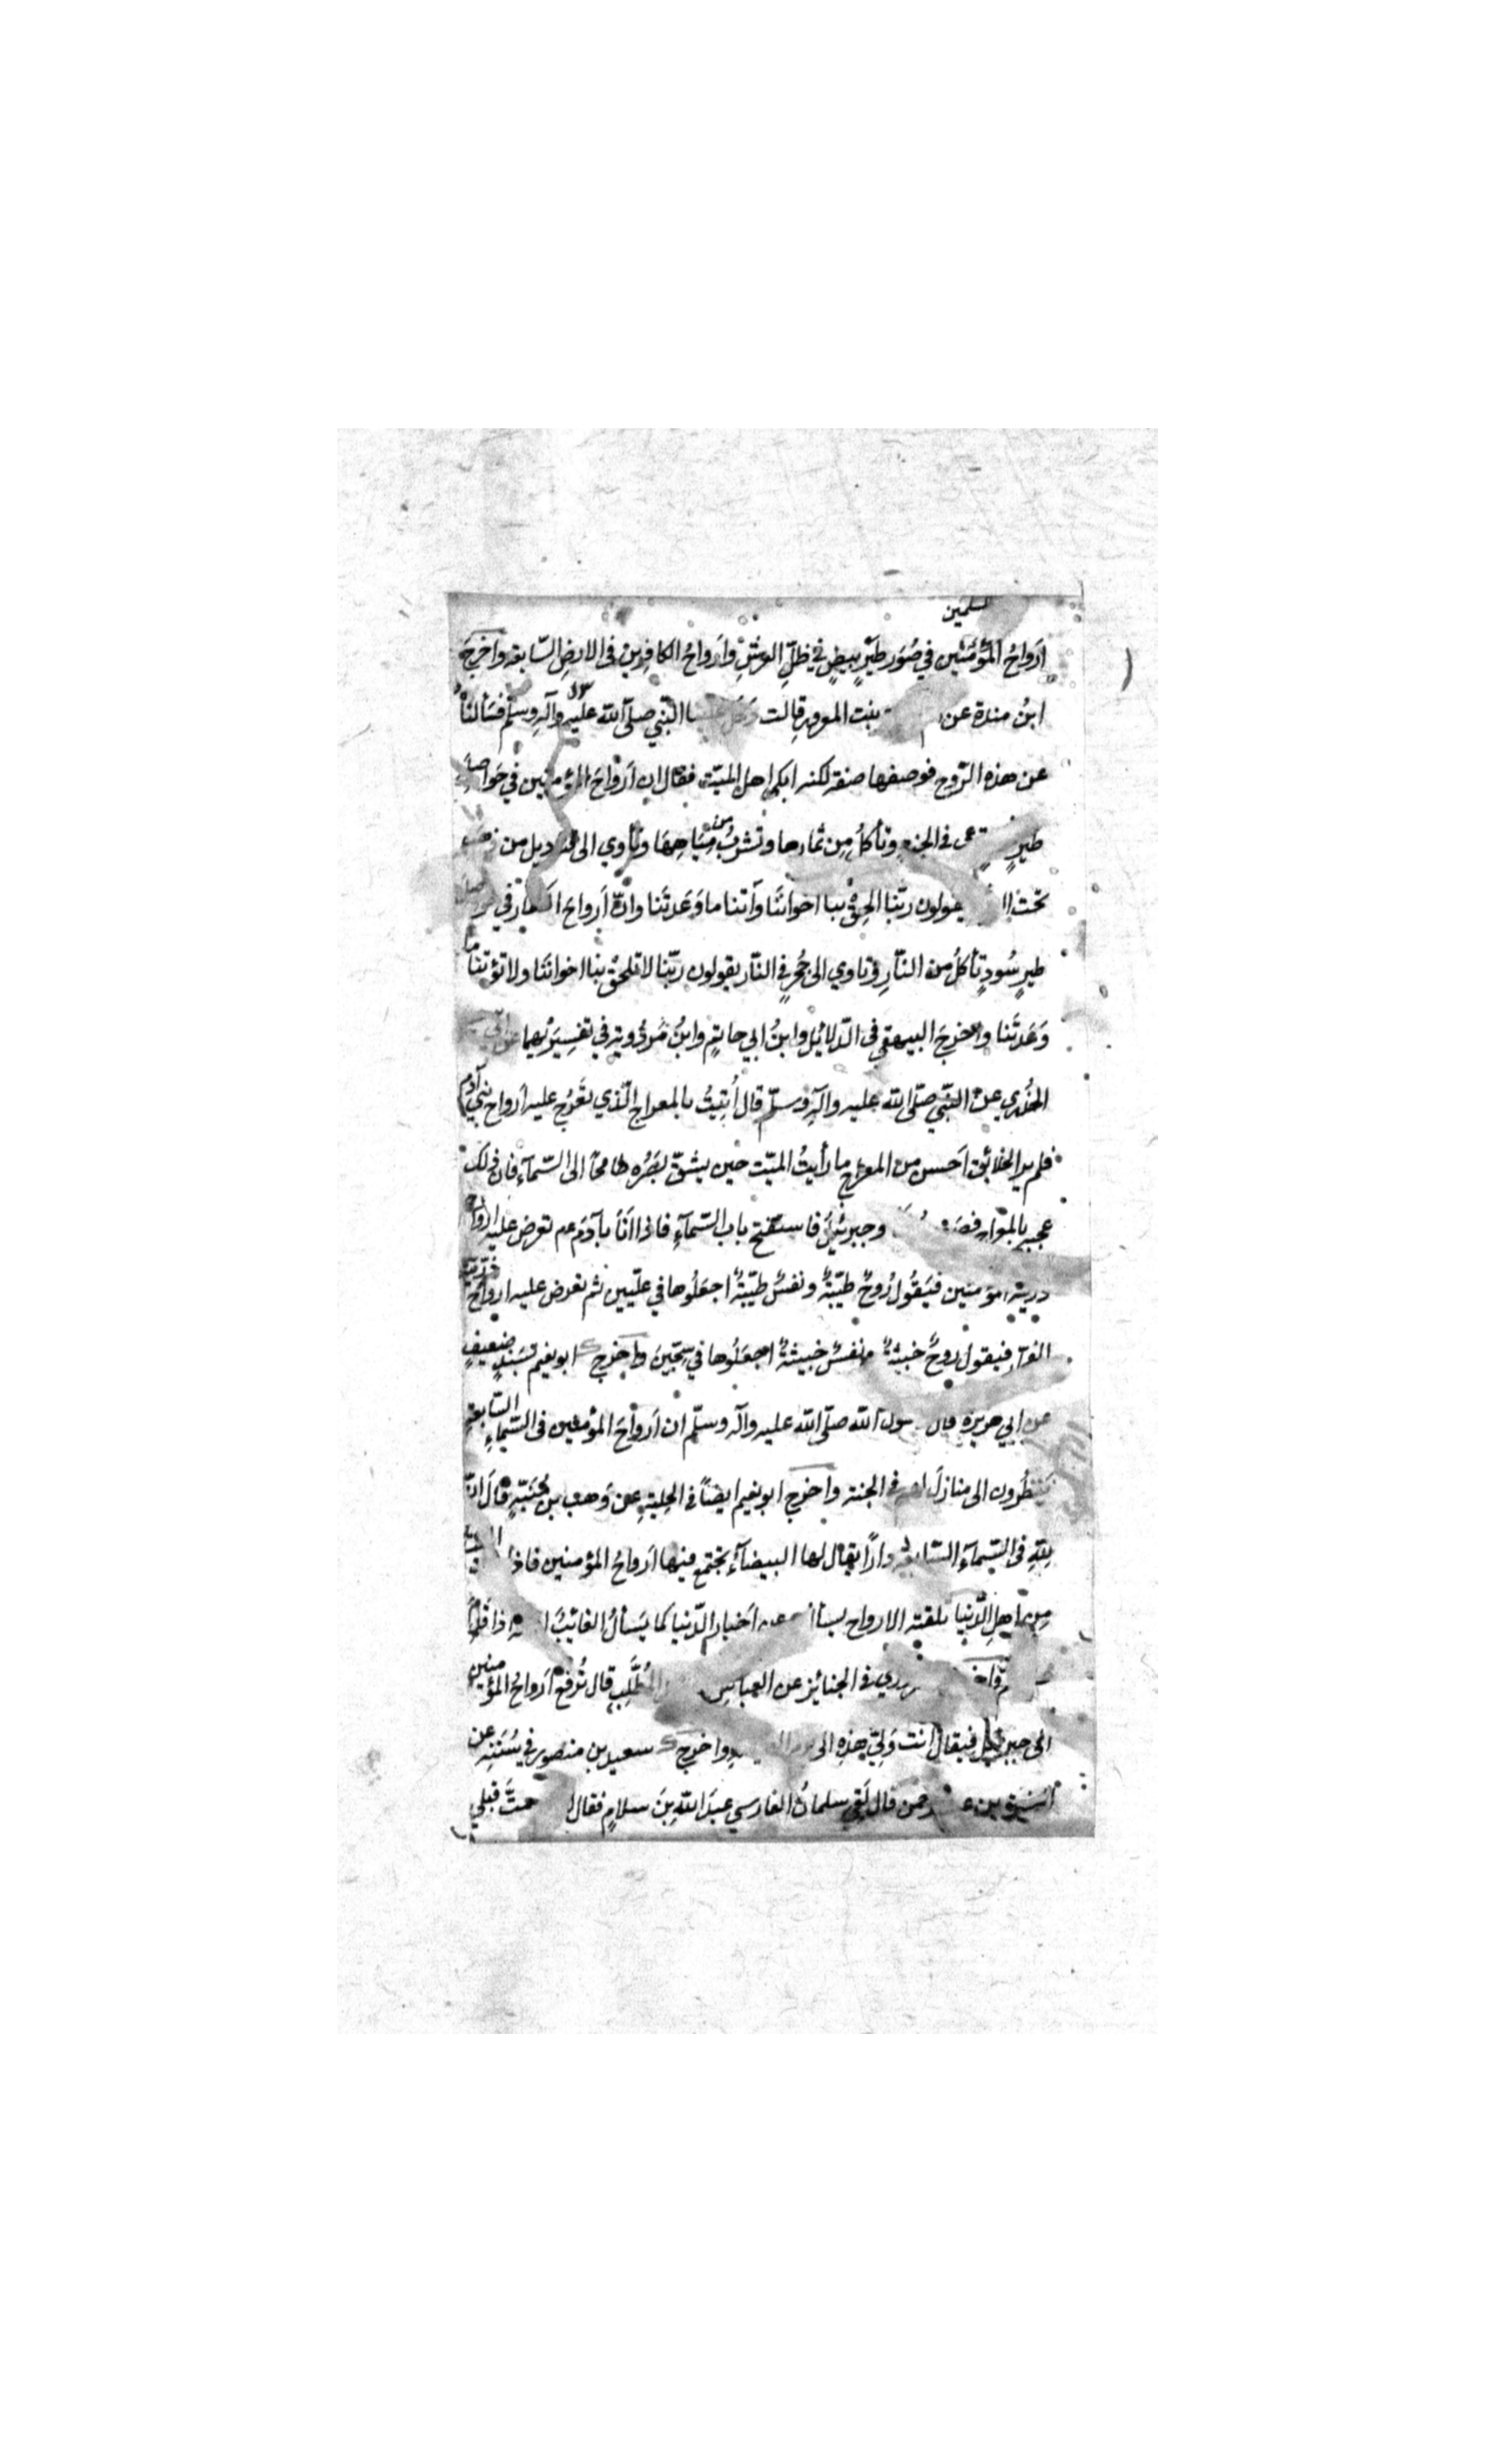 المسلمين
اَرواحُ المؤمنين في صُوَر طيرٍ بيضٍ في ظلِّ العرشِ وَاَرواحُ الكافِرين فى الارضِ السّابعة واخرجَ
ابنُ مندة عن بنت المعرور قالت دَخلَ علينا النّبي صلّى اللّه عليه وآلهِ وسلّم فسَألناهُ
عن هذه الرّوح فوصفها صفة لكنه ابكى اهل الميّت فقال ان اَرواحَ المؤمنين في حَواصلِ
طيرٍ في الجنة وتأكلُ مِن ثمارها وتشربُ من مِيَاهِهَا وتأوي الى قناديل من ذهب
تحتَ يقولون ربّنا الحِق بنا اخواننَا وآتنا ما وَعَدتَنا وانّ اَرواحَ الكفار في
طيرٍ سُودٍ تأكلُ من النّارِ وتاوي الى جُحرٍ في النّار يقولون ربّنا لا تلحق بنا اخواننَا ولا تؤتنا ما
وَعَدتَنا واخرجَ البيهقي فى الدّلائل وابنُ ابي حاتِمٍ وابنُ مَردُويه في تفسِيرَيهما عن ابي
الخُدري عن النّبي صلّى اللّه عليه وآلهِ وسلّم قال اُتِيتُ بالمعراج الّذي تعَرُج عليه اَرواح بني آدم
فلم ير الخلائق اَحسن من المعراج ما رأيتُ الميّت حين يشقّ بَصَرُه طامحًا الى السّمآء فان ذلك
عجبه بالمعراج وجبرئيل فاستفتح باب السّمآءِ فاذا اَنَا بآدَم عم تعرض عليه ارواح
ذريته المؤمنين فيَقُول رُوحٌ طيّبةٌ ونفسٌ طيّبةٌ اجعَلُوها في علّيين ثم تعرض عليه ارواح ذرّيّته
الفجّار فيقول روحٌ خبيثةٌ ونفسٌ خبيثةٌ اجعَلُوها في سِجّينَ واخرج ابو نعيم بسَندٍ ضعيفٍ
عن ابي هريرة قال رسول اللّه صلّى اللّه عليه وآله وسلّم ان اَرواحَ المؤمنين فى السّماءِ السّابعةِ
يَنظُرون الى منازلَهم في الجنة واخرج ابو نعيم ايضًا في الحِليةِ عن وَهب بن مُنَبّهٍ قال انّ
للّهِ فى السّمآءِ السّابعة دارًا يقال لها البيضآءُ يجتمع فيها اَرواحُ المؤمنين فاذا
من اهلِ الدّنيا تلقته الارواح يسألونه عن اَخبار الدّنيا كما يَسألُ الغائبُ اذا قدم
في الجنائز عن العباس المُطَّلِبِ قال تُرفع اَرواحُ المؤمنين
الى جبرئيل فيقال انت وَليّ هذِهِ الى واخرج سعيد بن منصور في سُنَنِه عن
قال لَقي سلمانُ الفارسي عبدَ اللّهِ بنَ سلامٍ فقال قبلي